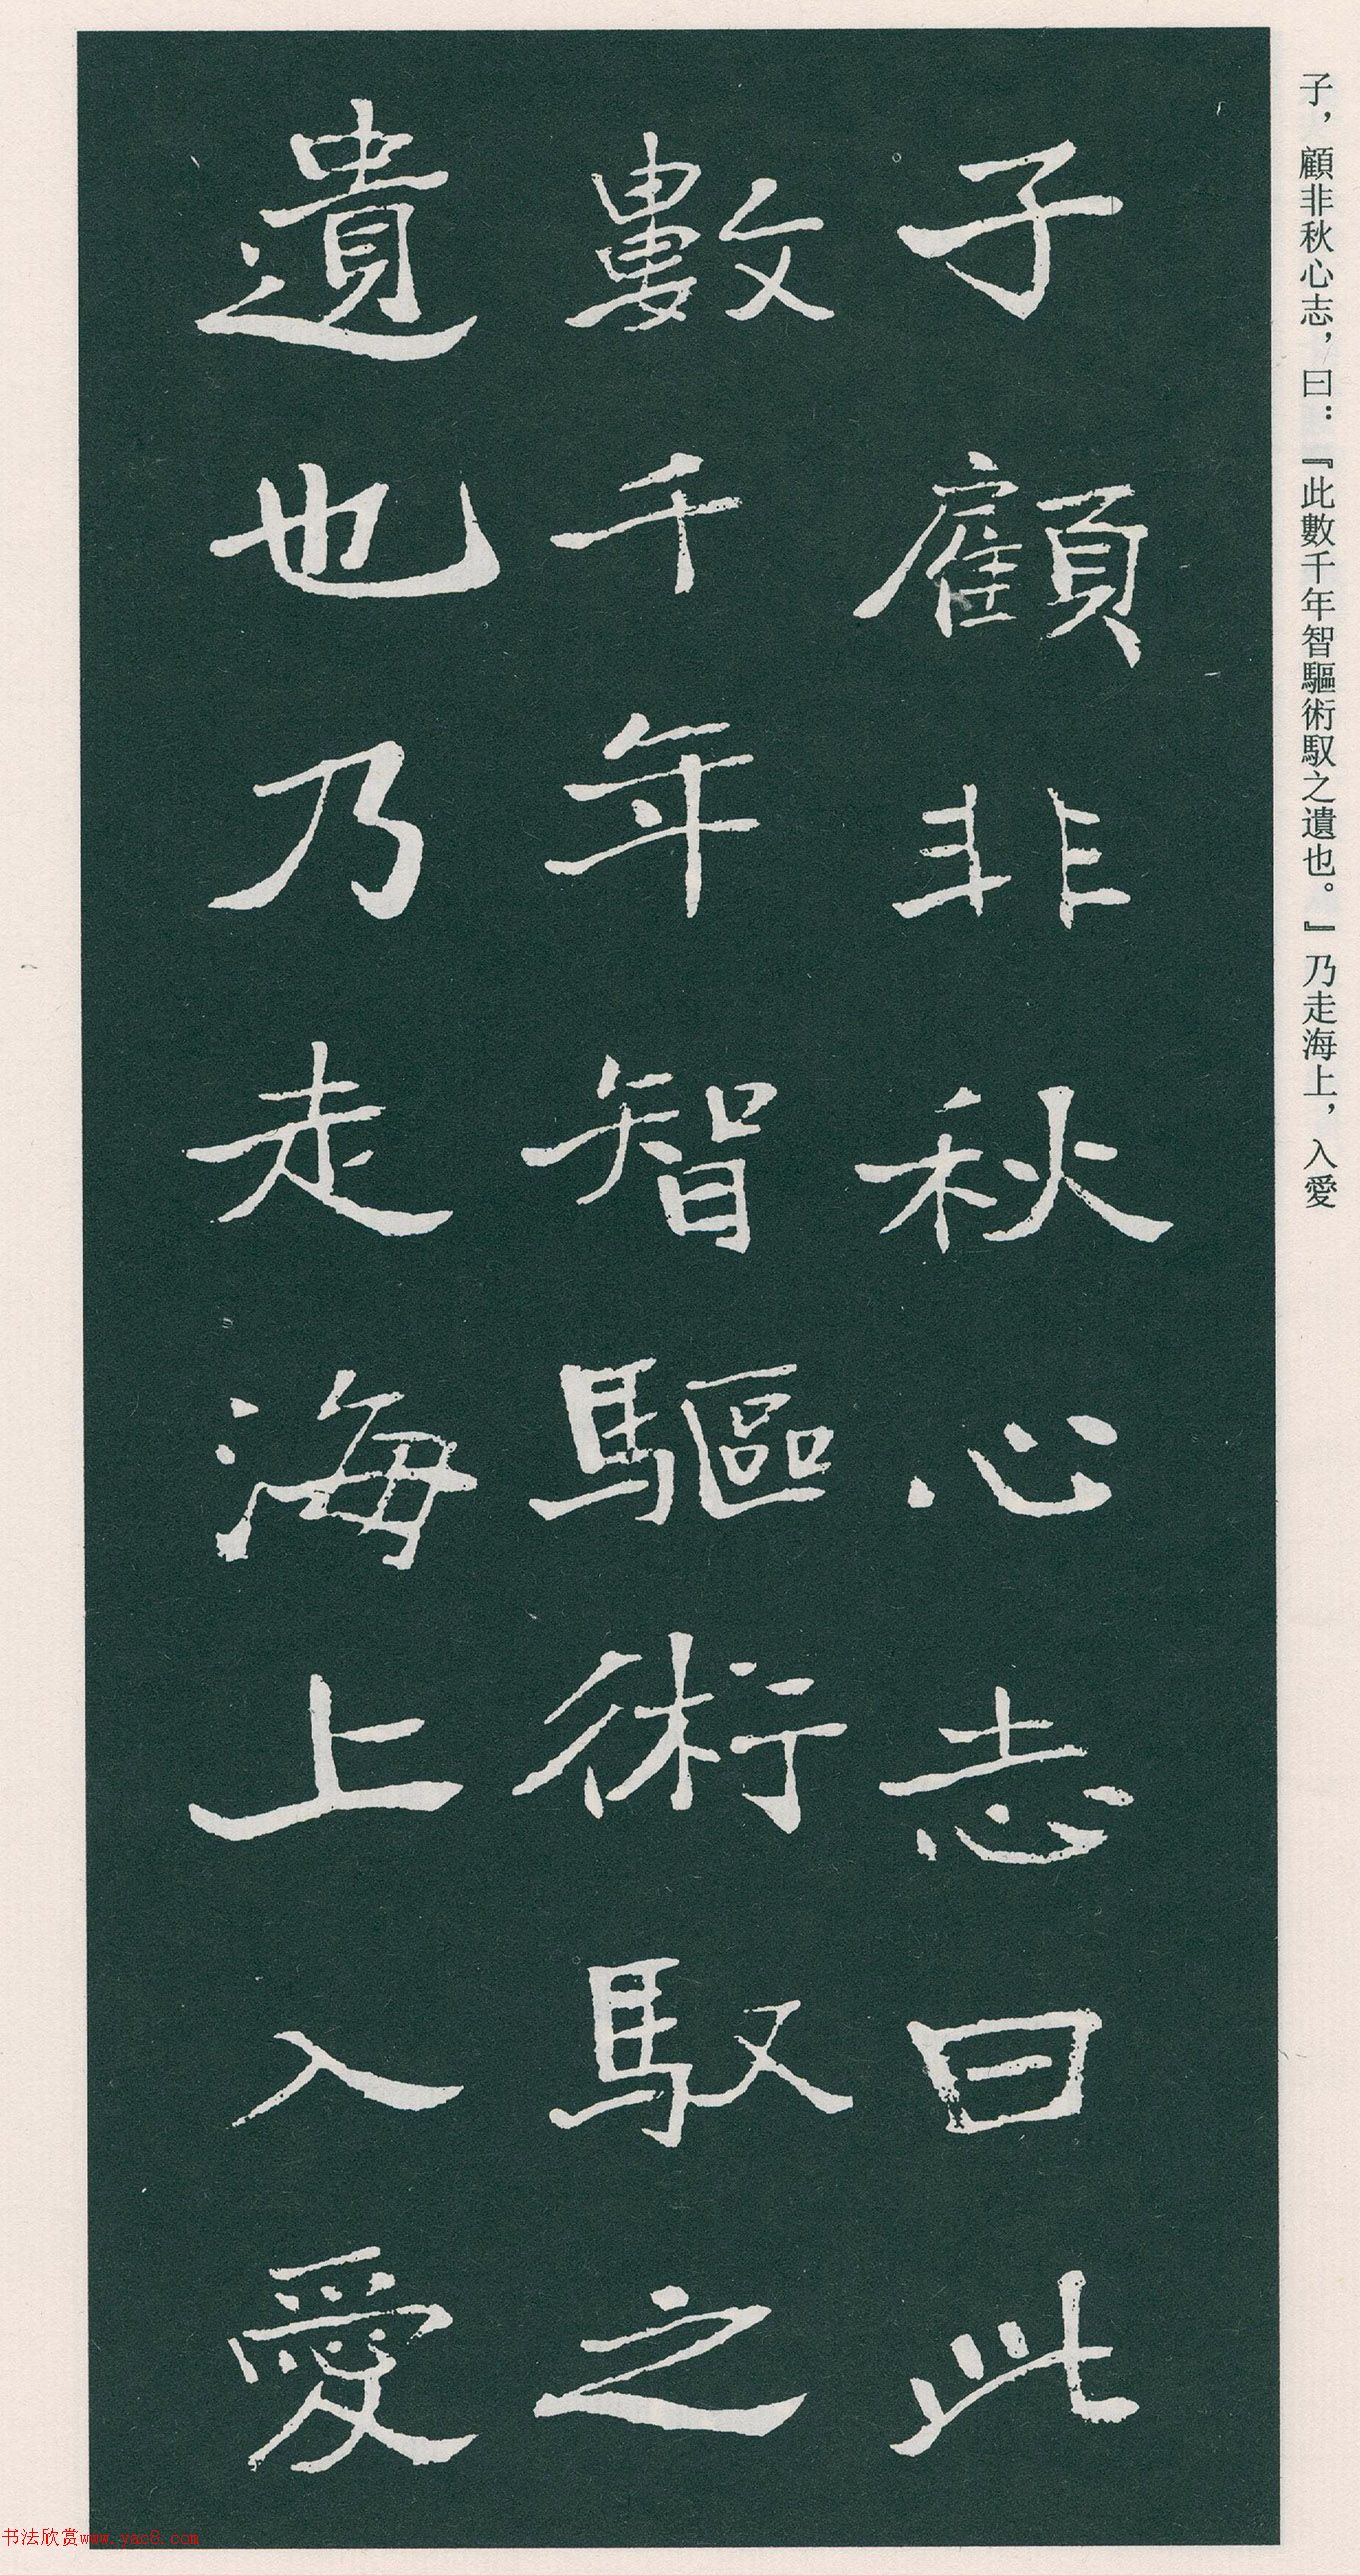 子，顧非秋心志，曰：『此數千年智驅術馭之遺也。』乃走海上，入愛
子顧非秋心志曰此
數千年智驅術馭之
遺也乃走海上入愛
书法欣赏www.yac8.com